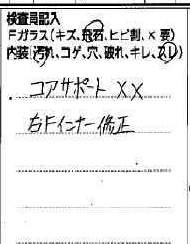 検査員記入
Fガラス(キズ、飛石、ヒビ割、×要)
内装(汚れ、コゲ、穴、破れ、キレ、スレ)
コアサポート ××
右Fインナー修正